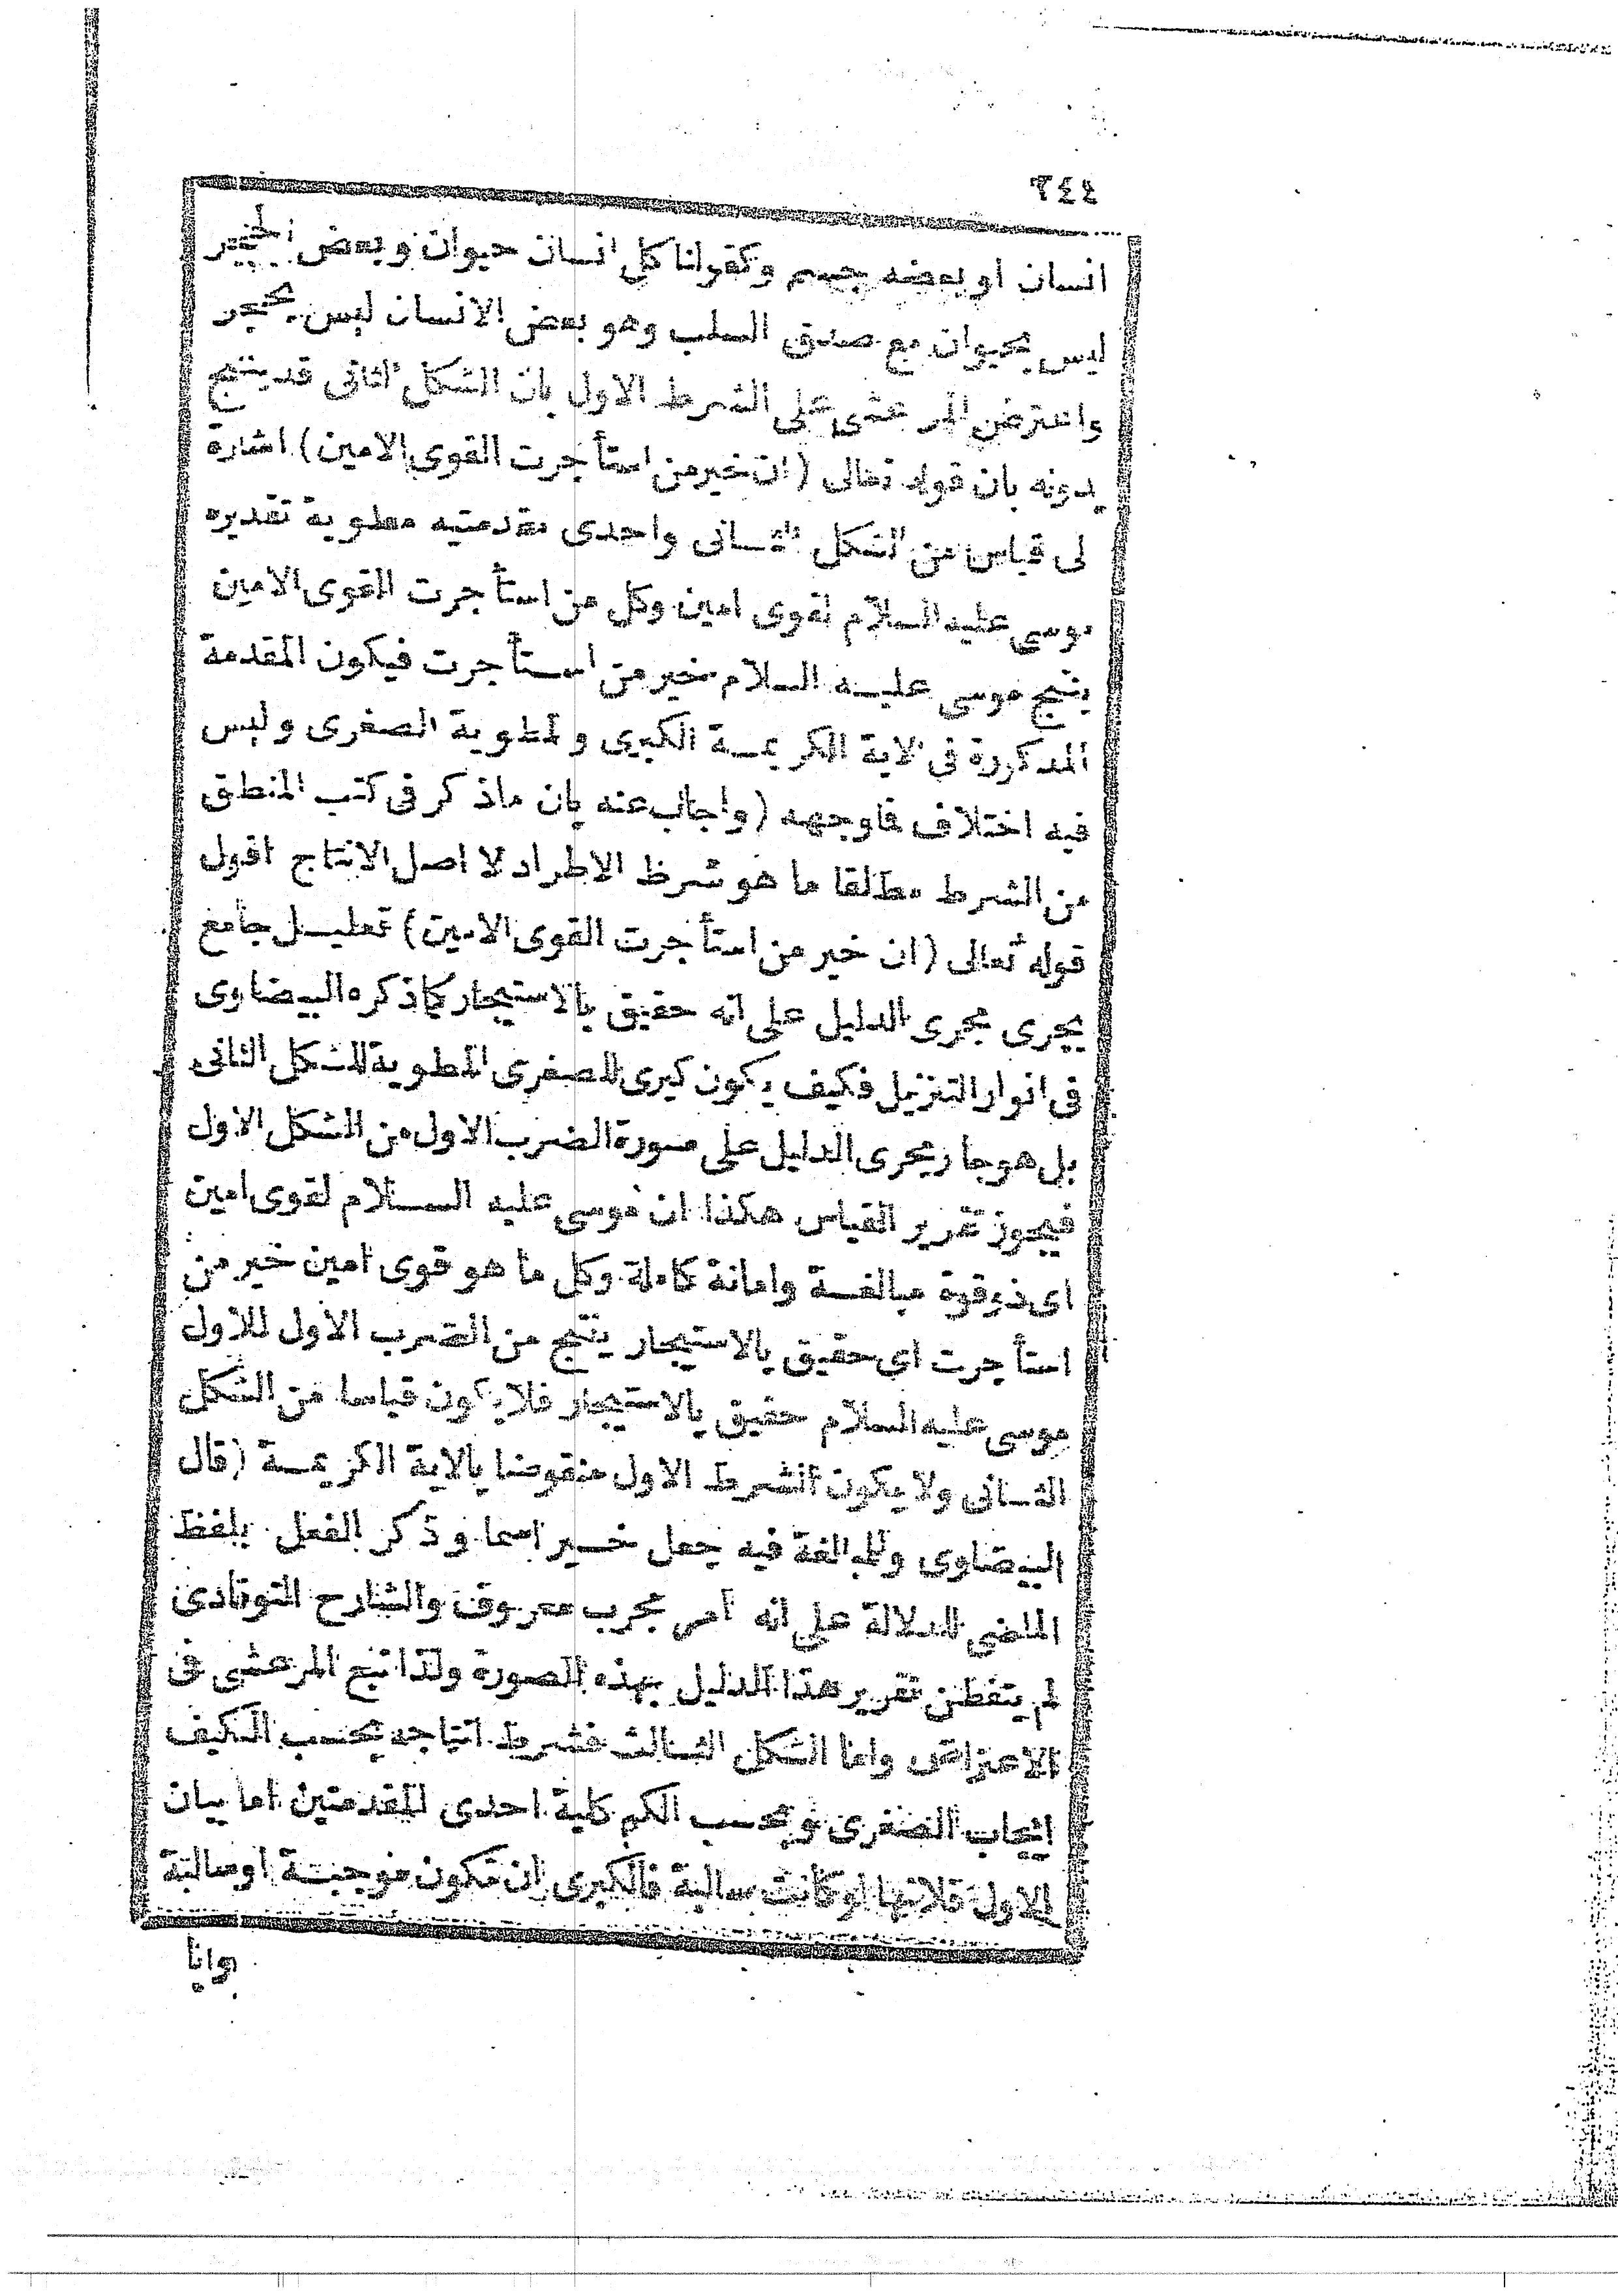 ٢٤٤
انسان او بعضه جسم وكقولنا كل انسان حيوان وبعض الحجر
ليس بحيوان مع صدق السلب وهو بعض الانسان ليس بحجر
واعترض المرعشى على الشرط الاول بان الشكل الثانى قد ينتج
بدونه بان قوله تعالى (ان خير من استأجرت القوى الامين) اشارة
لى قياس من الشكل الثانى واحدى مقدمتيه مطوية تقديره
موسى عليه السلام لقوى امين وكل من استأجرت القوى الامين
ينتج موسى عليه السلام خير من استأجرت فيكون المقدمة
المذكررة فى لاية الكريمة الكبرى والمطوية الصغرى وليس
فيه اختلاف فاوجهه (واجاب عنه بان ماذكر فى كتب المنطق
من الشرط مطلقا ما هو شرط الاطراد لا اصل الانتاج اقول
قوله تعالى (ان خير من استأجرت القوى الامين) تعليل جامع
يجرى مجرى الدليل على انه حقيق بالاستيجار كاذكره البيضاوى
فى انوار التنزيل فكيف يكون كبرى للصغرى المطوية للشكل الثانى
بل هو جار مجرى الدليل على صورة الضرب الاول من الشكل الاول
فيجوز تقرير القياس هكذا ان موسى عليه السلام لقوى امين
اى ذو قوة مبالغة وامانة كاملة وكل ما هو قوى امين خير من
استأجرت اى حقيق بالاستيجار ينتج من الضرب الاول للاول
موسى عليه السلام حقيق بالاستيجار فلا يكون قياسا من الشكل
الثانى ولا يكون الشرط الاول منقوضا بالاية الكريمة (قال
البيضاوى وللمبالغة فيه جعل خير اسما وذكر الفعل بلفظ
الماضى للدلالة على انه امر مجرب معروف والشارح التوقادى
لم يتفطن تقرير هذا الدليل بهذه الصورة ولذا تبع المرعشى فى
الاعتراض واما الشكل الثالث فشرط انتاجه بحسب الكيف
ايجاب الصغرى وبحسب الكم كلية احدى المقدمتين اما بيان
الاول فلانها لو كانت سالبة فالكبرى ان تكون موجبة او سالبة
واياً